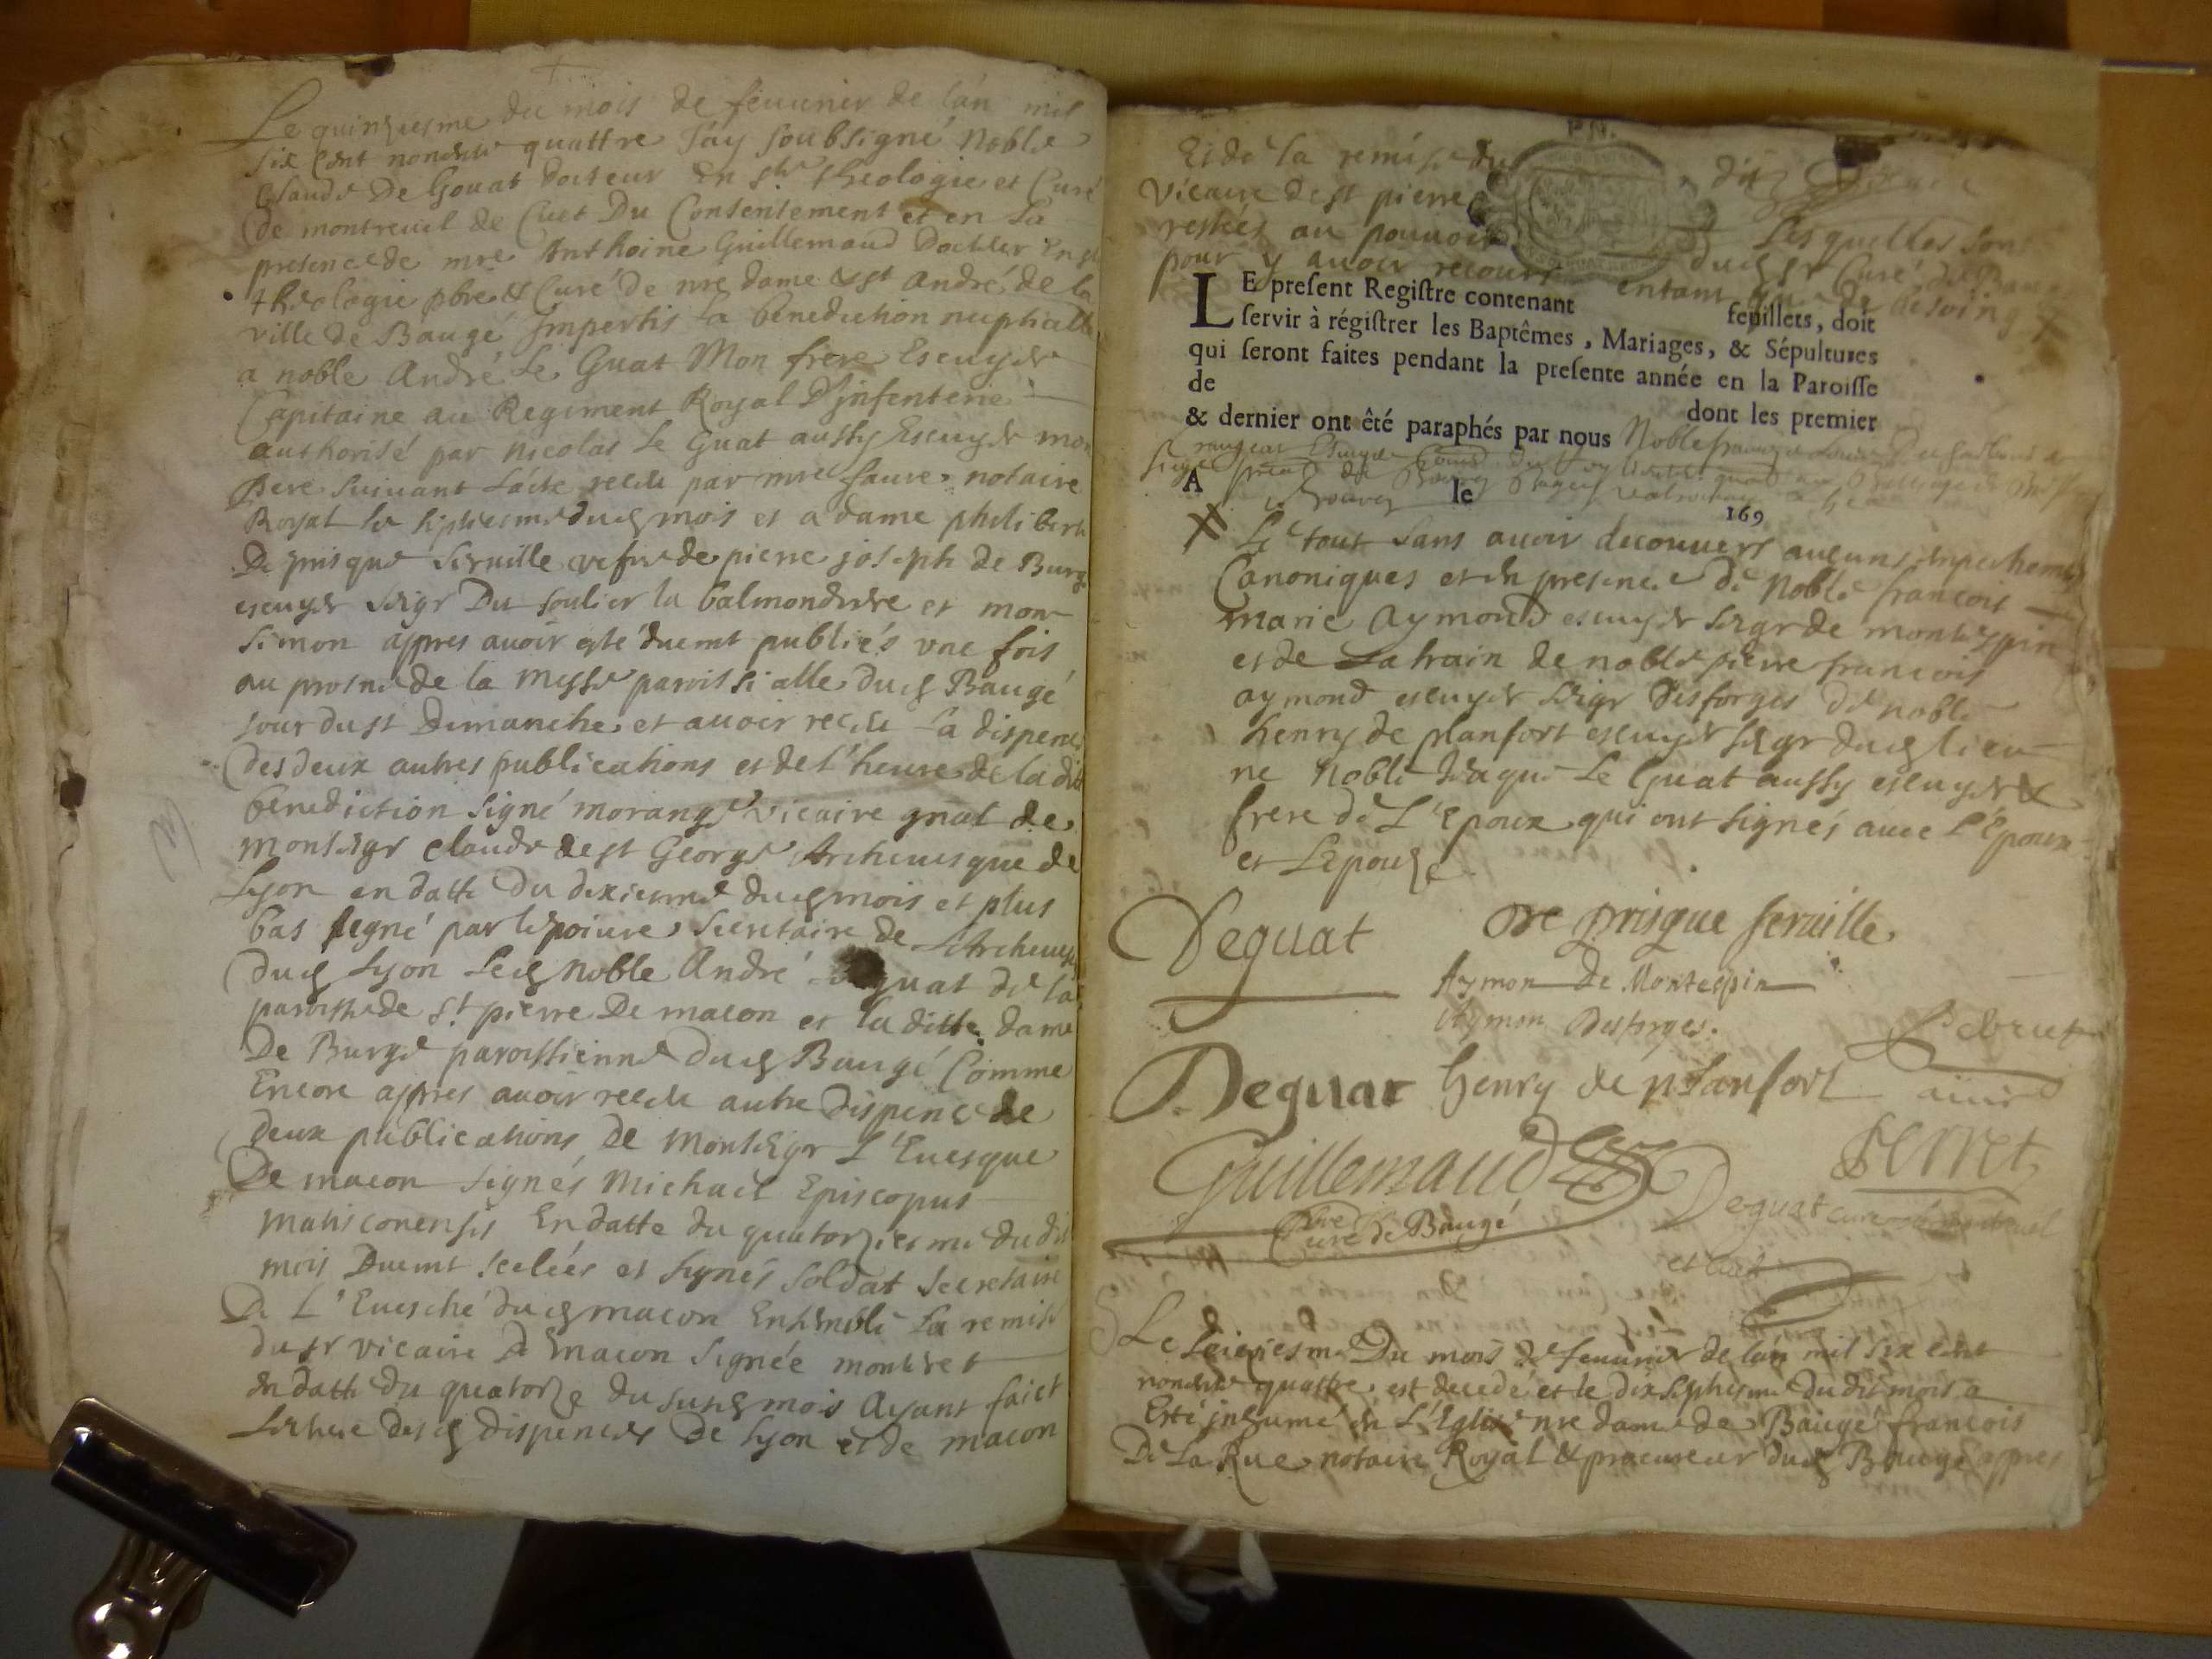 Le quinziesme du mois de feuurier de lán mil
six cent nonente quattre J'ay soubsigné Noble
Claude De Gouat docteur En ste theologie et Curé
de montreuil de Cuet Du Consentement et en La
presence de mre Anthoine Guillemaud Docteur En st
theologie pbre & Curé de nre dame & st André de la
ville de Baugé Impertis la benediction nuptialle
a noble André Le Guat Mon frere Escuyer
Capitaine au Regiment Royal D'jnfenterie
authorisé par nicolas Le Guat aussy Escuyer mon
pere suiuant L'acte receu par mre faure notaire
Royal le septiesme dud mois et a dame philiberte
De prisque Seruille vefue de pierre joseph de Burge
escuyer seigr Du soulier la balmondiere et mon
simon appres auoir esté duemt publiés vne fois
au prosne de la messe paroissialle dud Baugé
jour dust Dimanche et auoir receu La dispence
des deux autres publications et de l'heure de la dit
benediction signé morange vicaire gnal de
monseigr claude de st George Archeuesque de
Lyon en datte du dixiesme dud mois et plus
bas segné par lepoiure secretaire de Larcheuesq
dud Lyon Led noble André guat de la
paroisse de st pierre De macon et la ditte dame
De Burge paroissienne dud Baugé Comme
Encore appres auoir receu autre dispence de
deux publications de Monseigr L'Euesque
De macon signés Michael Episcopus
matisconensis En datte du quatorziesme du dit
mois Duemt scelées et signés soldat secretaire
De L'Euesché dud macon Ensemble La remise
du sr vicaire de macon signée monteret
en datte du quatorze du susd mois Ayant faict
lecture des d dispences De Lyon et de macon
Et de la remise du
vicaire de st pierre
restées au pouuoir
Les quelles sont
dud sr Curé de Baugé
pour y auoir recours
en tant que de besoing
LE present Registre contenant feüillets, doit
servir à régistrer les Baptêmes, Mariages, & Sépultures
qui seront faites pendant la presente année en la Paroisse
de dont les premier
& dernier ont êté paraphés par nous Noble
A le 169
Le tout sans auoir decouuert aucuns empechements
Canoniques et en presence de Noble francois
marie Aymond escuyer seigr de montespin
et de La train de noble pierre francois
aymond escuyer seigr Desforges de noble
henry de planfort escuyer seigr dud lieu
ne Noble Jaque Le Guat aussy escuyer &
frere de L'Epoux qui ont signés auec L'Epoux
et L'Epouse
Deguat De prisque seruille
Aymon De Montespin
Aymon Desforges.
Deguat henry de planfort
Guillemaud
Perret
pbre Curé de Baugé
Deguat curé de montreuil
et cuet
Le seiziesme Du mois de feuurier de lán mil six cent
nonente quattre est decedé et le dix septiesme du dit mois a
Esté jnhumé en L'Eglise nre dame de Baugé francois
De La Rue notaire Royal & procureur dud Baugé appres